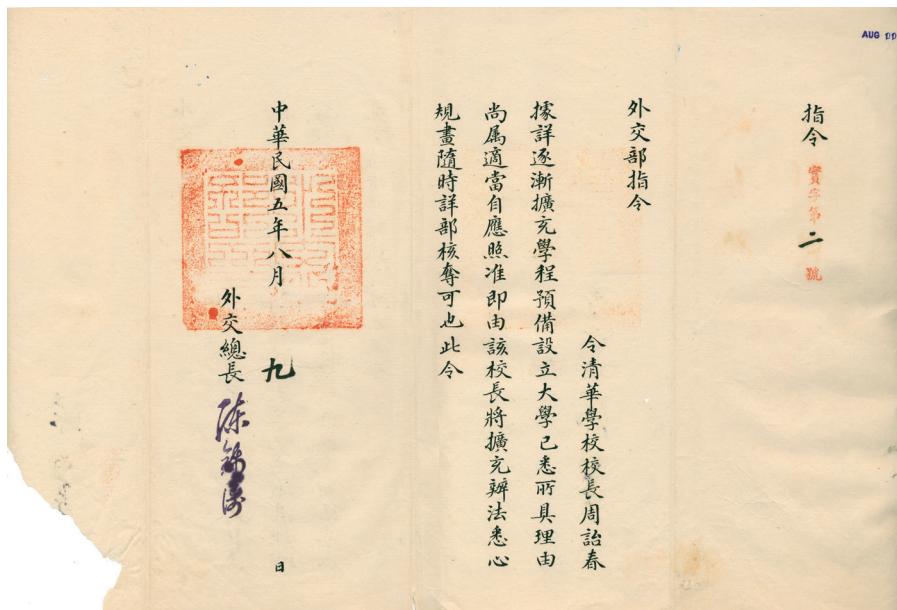 AUG
指令 實字第二號
外交部指令
令清華學校校長周詒春
據詳逐漸擴充學程預備設立大學已悉所具理由
尚属適當自應照准即由該校長將擴充辦法悉心
規畫隨時詳部核奪可也此令
中華民國五年八月九日
外交總長陳錦濤